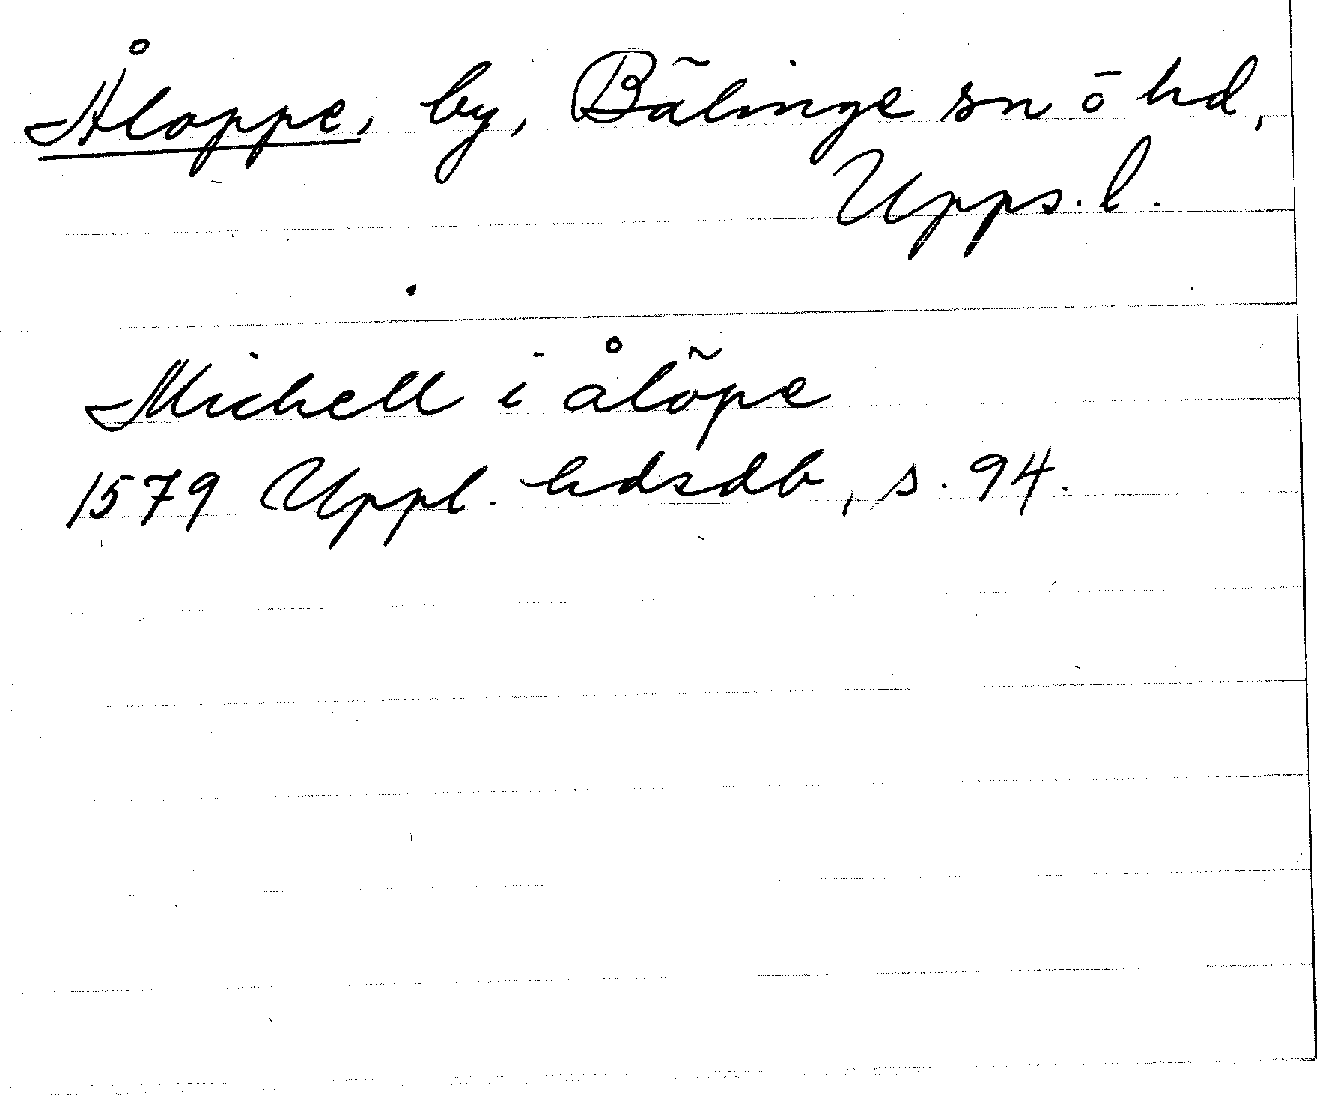 Åloppe, by, Bälinge sn ö hd,
Upps. l.
Michell i ålöpe
1579 Uppl. hdsdb, s. 94.